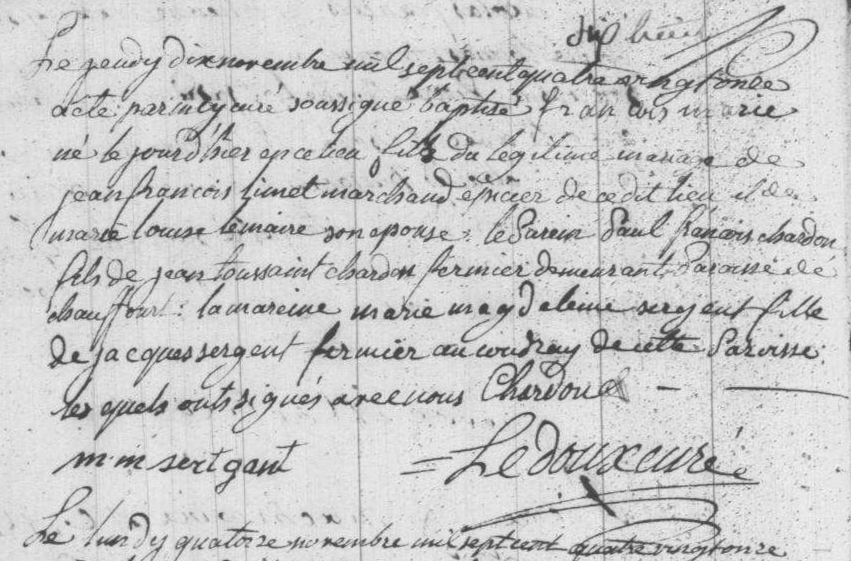 Le jeudy dix novembre mil sept cent quatre vingt onze
a eté par moy curé soussigné baptisé françois marie
né le jour d'hier en ce lieu fils du légitime mariage de
jean françois limet marchand epicier de ce dit lieu et de
marie louise lemaire son epouse : le parein paul françois chardon
fils de jean toussaint chardon fermier demeurant paroisse de
chauffour : la mareine marie magdeleine sergent fille
de jacques sergent fermier au coudray de cette paroisse :
les quels onts signés avec nous Chardon
m·m sertgant Le doux curé
Le lundy quatorze novembre mil sept cent quatre vingt onze